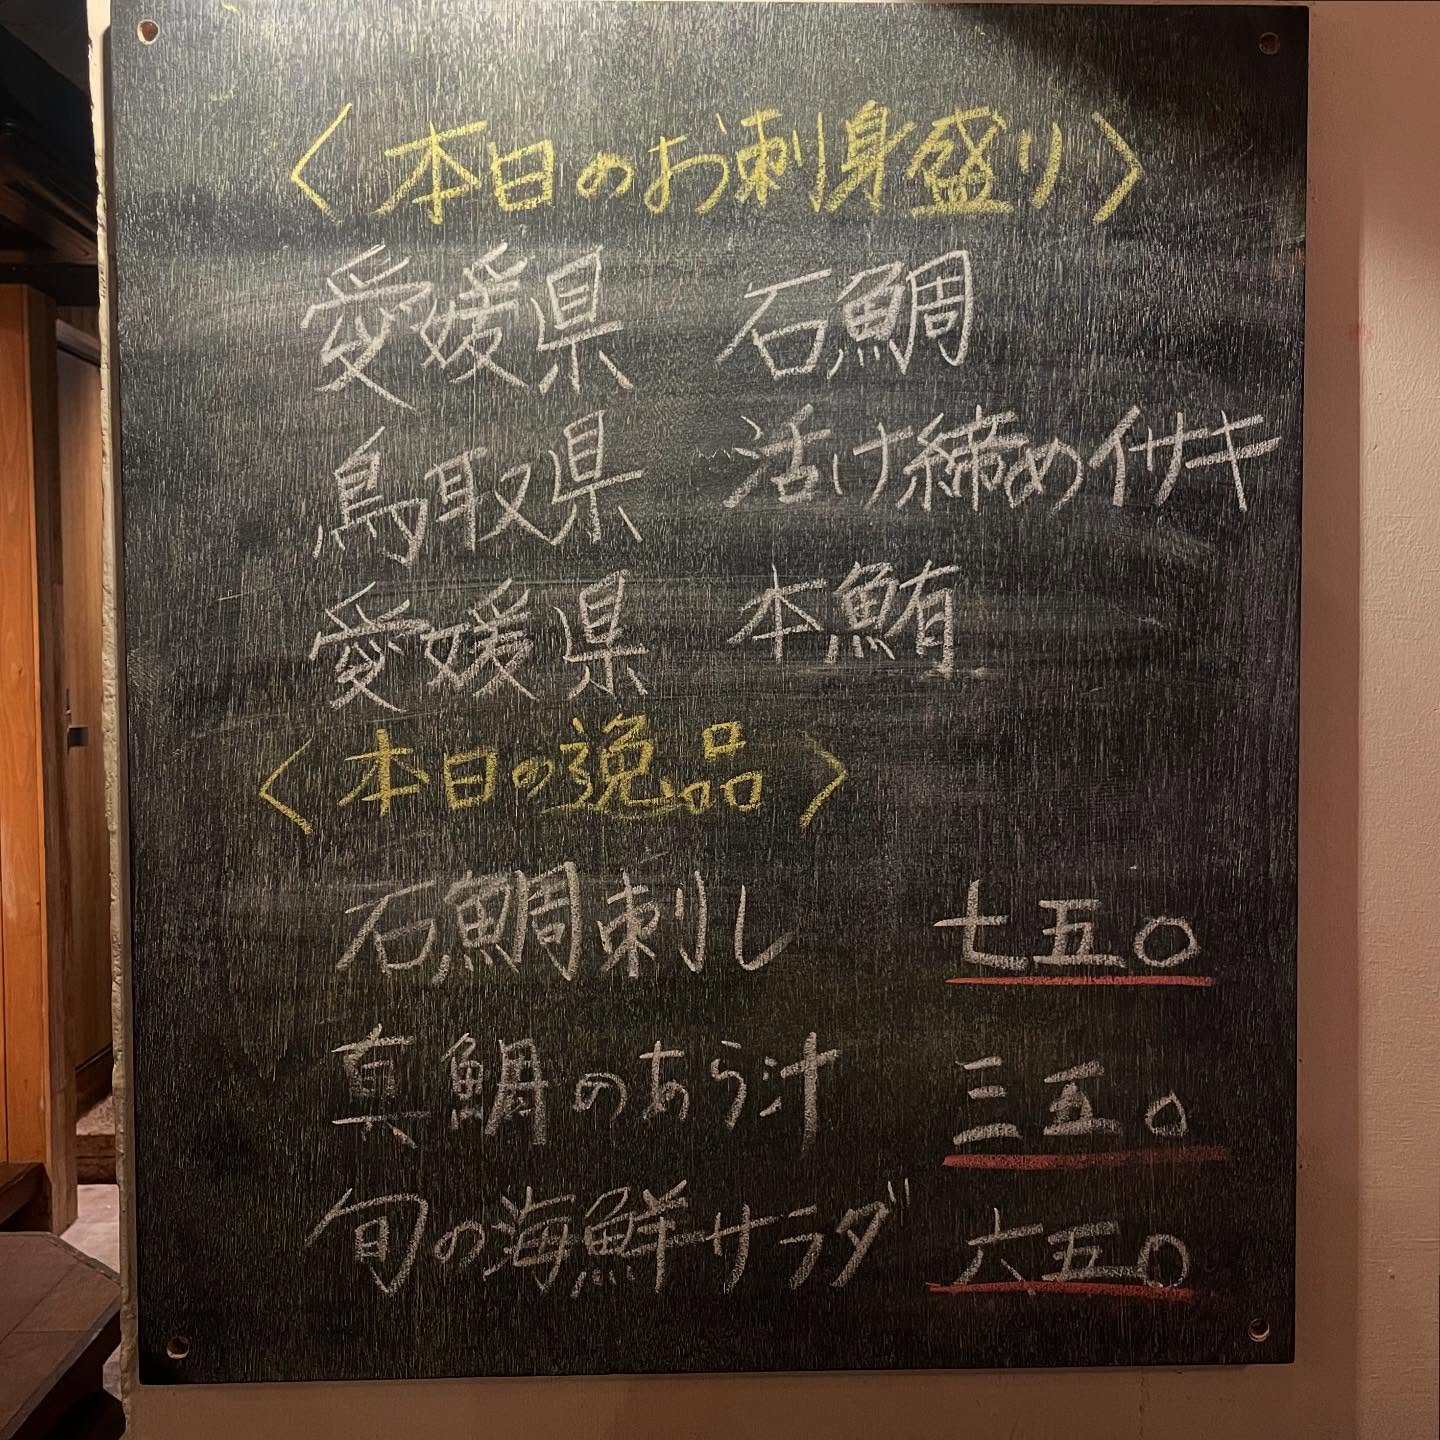 〈本日のお刺身盛り〉
愛媛県 石鯛
鳥取県 活け締めイサキ
愛媛県 本鮪
〈本日の逸品〉
石鯛刺し 七五〇
真鯛のあら汁 三五〇
旬の海鮮サラダ 六五〇